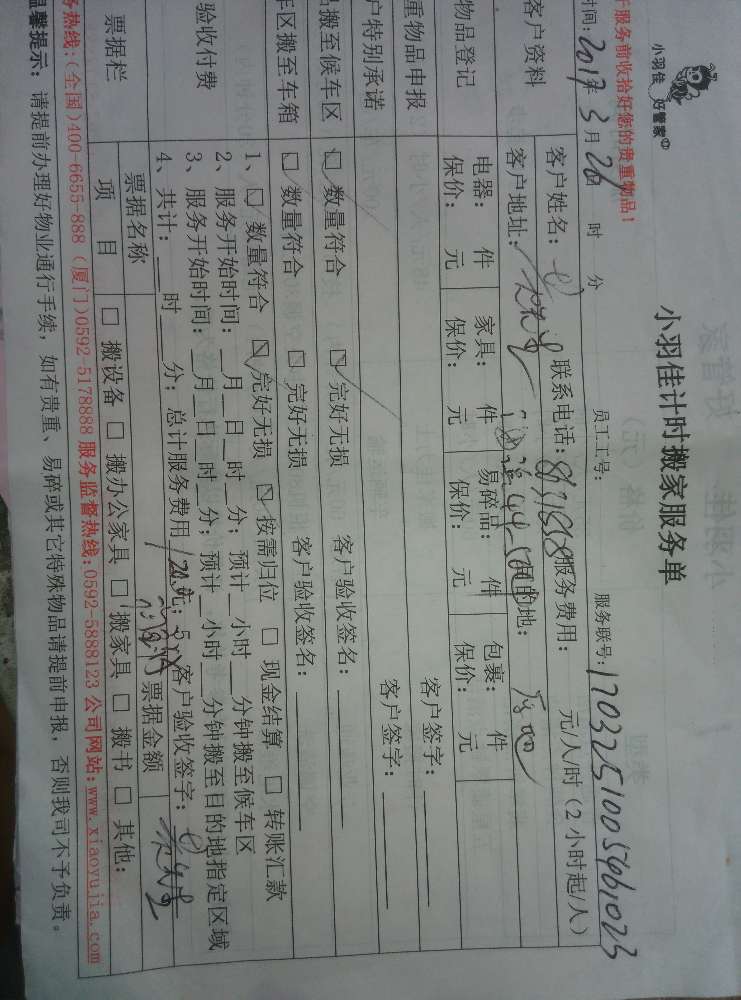 小羽佳 好管家
小羽佳计时搬家服务单
服务前收拾好您的贵重物品！
时间：2017年3月26日 时 分 员工工号： 服务联号：
客户资料 客户姓名： 联系电话： 服务费用： 元/人/时（2小时起/人）
客户地址： 目的地：
物品登记 电器： 件 家具： 件 易碎品： 件 包裹： 件
保价： 元 保价： 元 保价： 元 保价： 元
重物品申报 客户签字：
户特别承诺 客户签字：
搬至候车区 ☑ 数量符合 ☑ 完好无损 客户验收签名：
车区搬至车箱 ☑ 数量符合 □ 完好无损 客户验收签名：
验收付费 1、☑ 数量符合 ☑ 完好无损 ☑ 按需归位 □ 现金结算 □ 转账汇款
2、服务开始时间： 月 日 时 分；预计 小时 分钟搬至候车区
3、服务开始时间： 月 日 时 分；预计 小时 分钟搬至目的地指定区域
4、共计： 时 分；总计服务费用 元；5、客户验收签字：
票据栏 票据名称 票据金额
项 目 □ 搬设备 □ 搬办公家具 □ 搬家具 □ 搬书 □ 其他：
务热线：（全国）400-6655-888（厦门）0592-5178888 服务监督热线：0592-5888123 公司网站：www.xiaoyujia.com
温馨提示：请提前办理好物业通行手续，如有贵重、易碎或其它特殊物品请提前申报，否则我司不予负责。